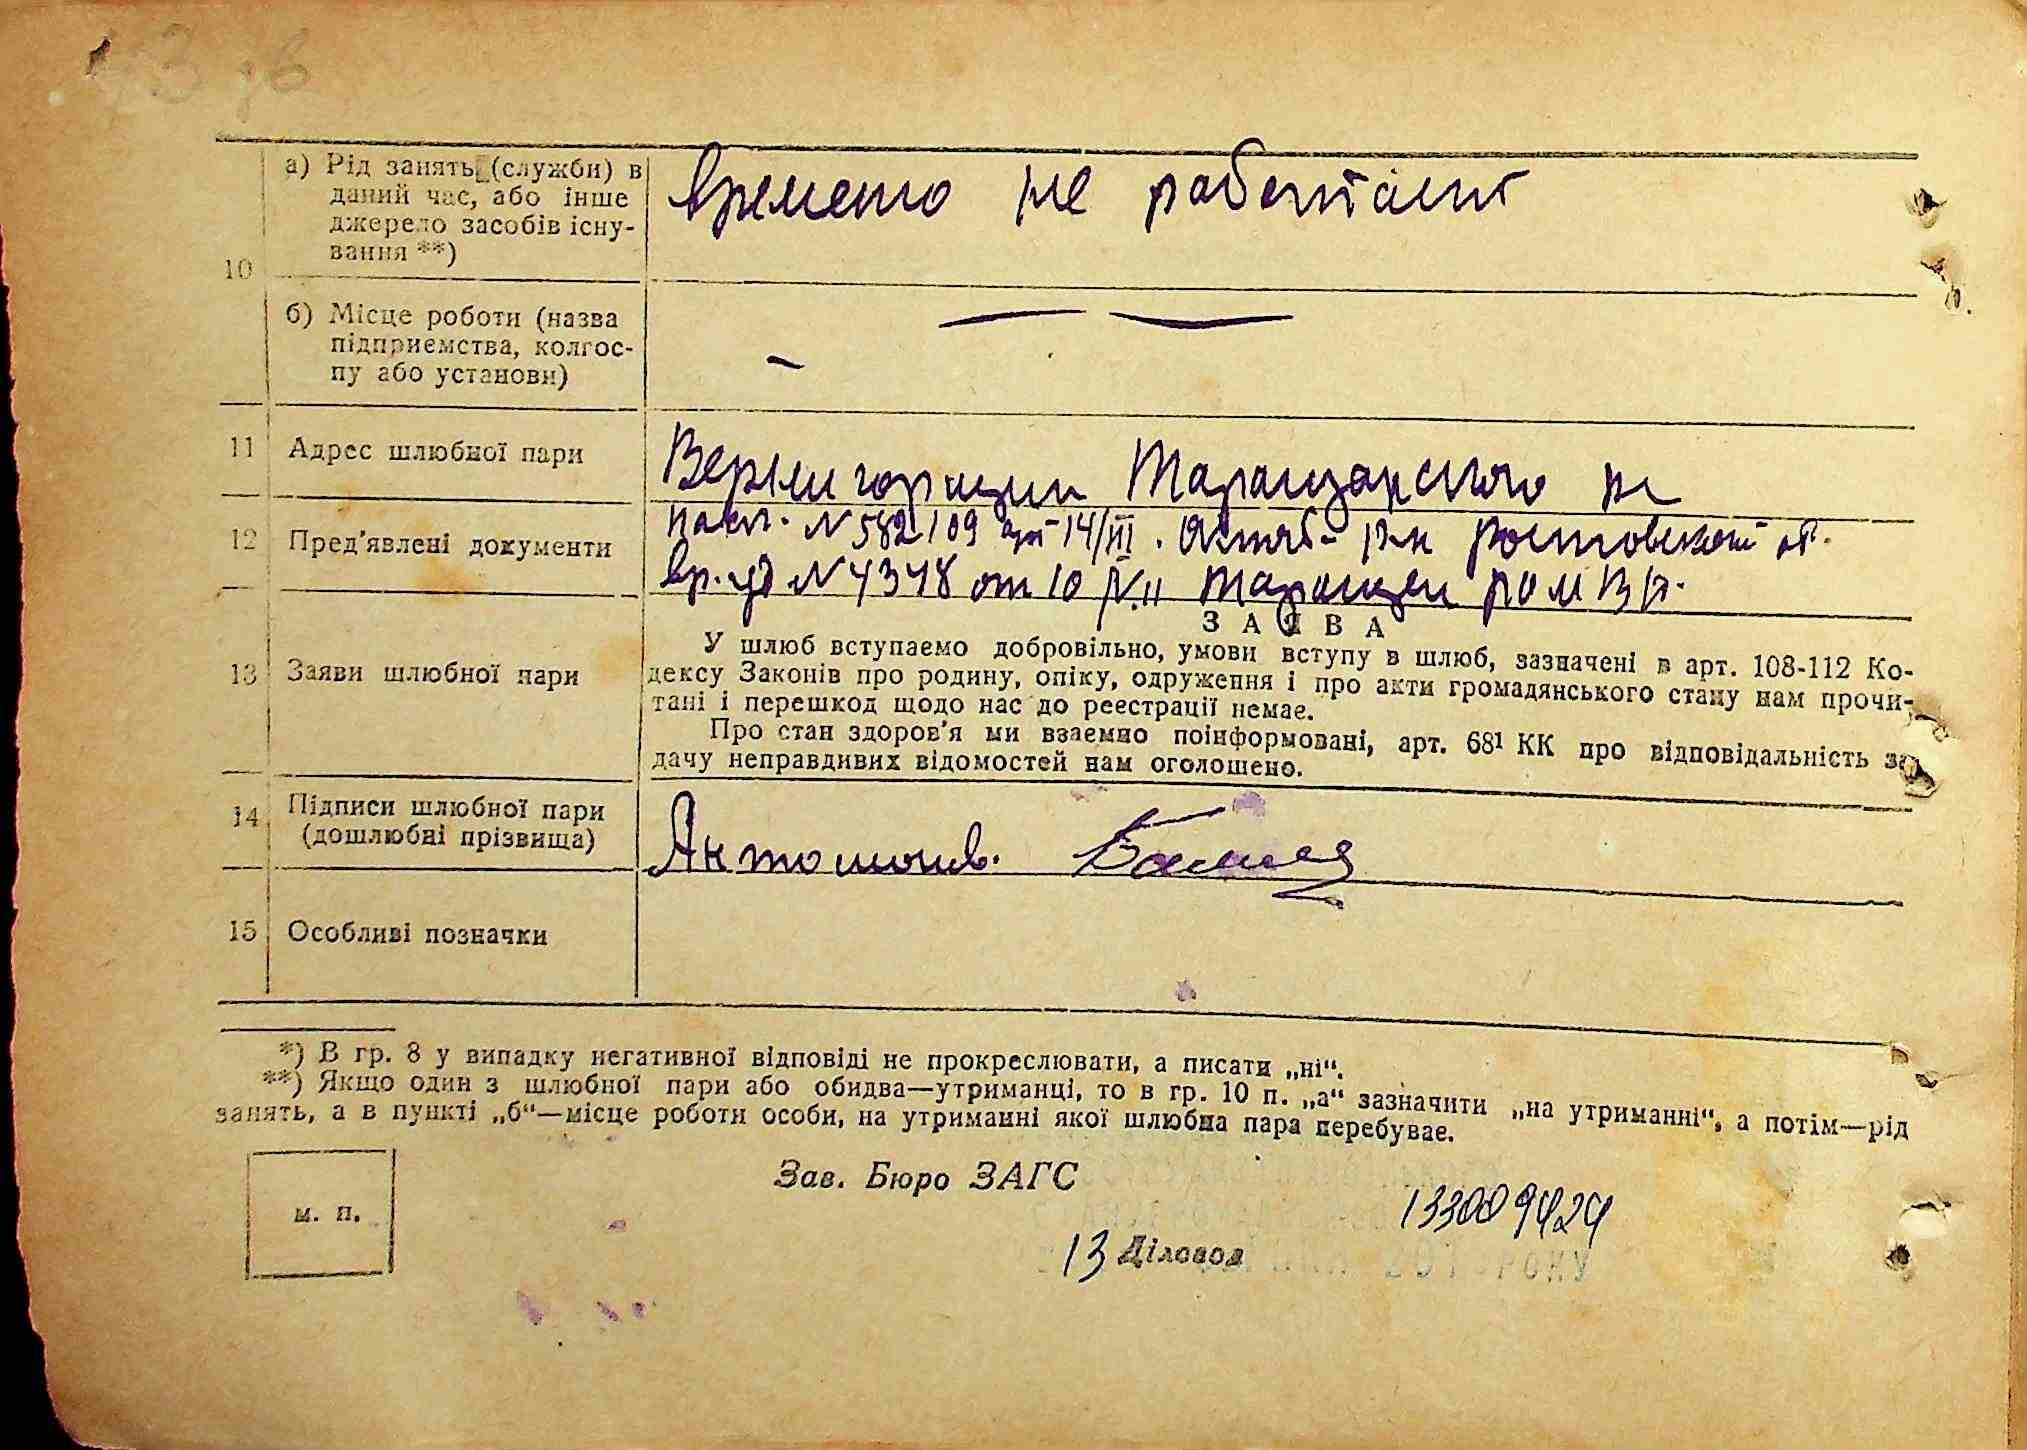 а) Рід занять (служби) в
даний час, або інше
джерело засобів існу-
вання **)
временно не работают
10
б) Місце роботи (назва
підприємства, колгос-
пу або установи)
11 Адрес шлюбної пари
Таращанского
12 Пред'явлені документи
пасп. N 582109 14/III. Октяб. р-н Ростовской об.
вр. уд N 4348 от 10
13 Заяви шлюбної пари
ЗАЯВА
У шлюб вступаємо добровільно, умови вступу в шлюб, зазначені в арт. 108-112 Ко-
дексу Законів про родину, опіку, одруження і про акти громадянського стану нам прочи-
тані і перешкод щодо нас до реєстрації немає.
Про стан здоров'я ми взаємно поінформовані, арт. 68¹ КК про відповідальність за
дачу неправдивих відомостей нам оголошено.
14 Підписи шлюбної пари
(дошлюбні прізвища)
15 Особливі позначки
*) В гр. 8 у випадку негативної відповіді не прокреслювати, а писати „ні“.
**) Якщо один з шлюбної пари або обидва—утриманці, то в гр. 10 п. „а“ зазначити „на утриманні“, а потім—рід
занять, а в пункті „б“—місце роботи особи, на утриманні якої шлюбна пара перебуває.
м. п.
Зав. Бюро ЗАГС
13 Діловод